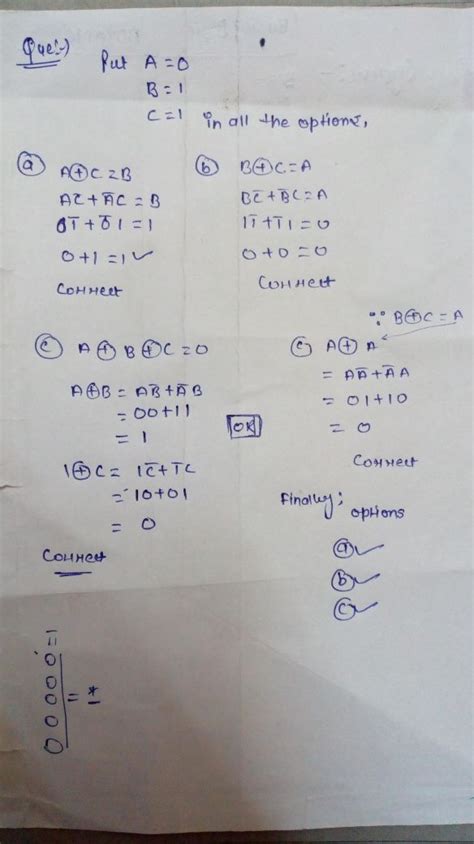 Que:-)
Put A=0
B=1
C=1 in all the options,
(a) A⊕C=B
AC̅+A̅C=B
01̅+0̅1=1
0+1=1✓
Correct
(b) B⊕C=A
BC̅+B̅C=A
11̅+1̅1=0
0+0=0
Correct
(c) A⊕B⊕C=0
A⊕B=AB̅+A̅B
=00+11
=1
1⊕C=1C̅+1̅C
=10+01
=0
Correct
OR
∵ B⊕C=A
(c) A⊕A
=AA̅+A̅A
=01+10
=0
Correct
Finally;
options
(a)✓
(b)✓
(c)✓